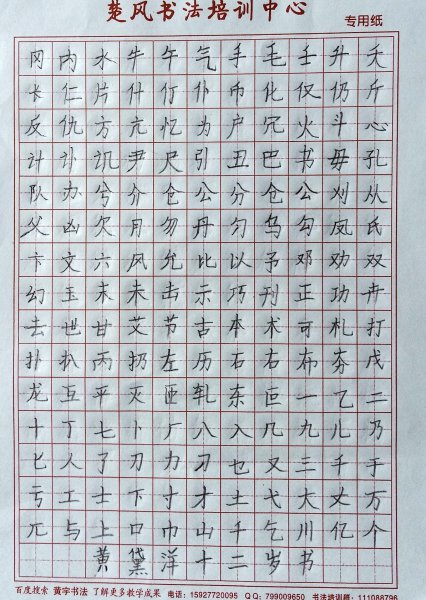 楚风书法培训中心
专用纸
冈内水牛午气手毛壬升夭
长仁片什仃仆币化仅仍斤
反仇方亢忆为户冗火斗心
计讣讥尹尺引丑巴书毋孔
队办兮介仓公分仓公刈从
父凶欠月勿丹匀乌勾凤氏
卞文六风允比以予邓劝双
幻玉末未击示巧刊正功卉
去世甘艾节古本术可札打
扑扒丙扔左历石右布夯戊
龙互平灭匝轧东叵一乙二
十丁七卜厂八入几九儿乃
匕人了刀力刁也又三千于
亏工士下寸才土弋大丈万
兀与上口巾山千乞川亿个
黄黛洋十二岁书
百度搜索 黄宇书法 了解更多教学成果 电话:15927720095 QQ:799009650 书法培训群:111088796